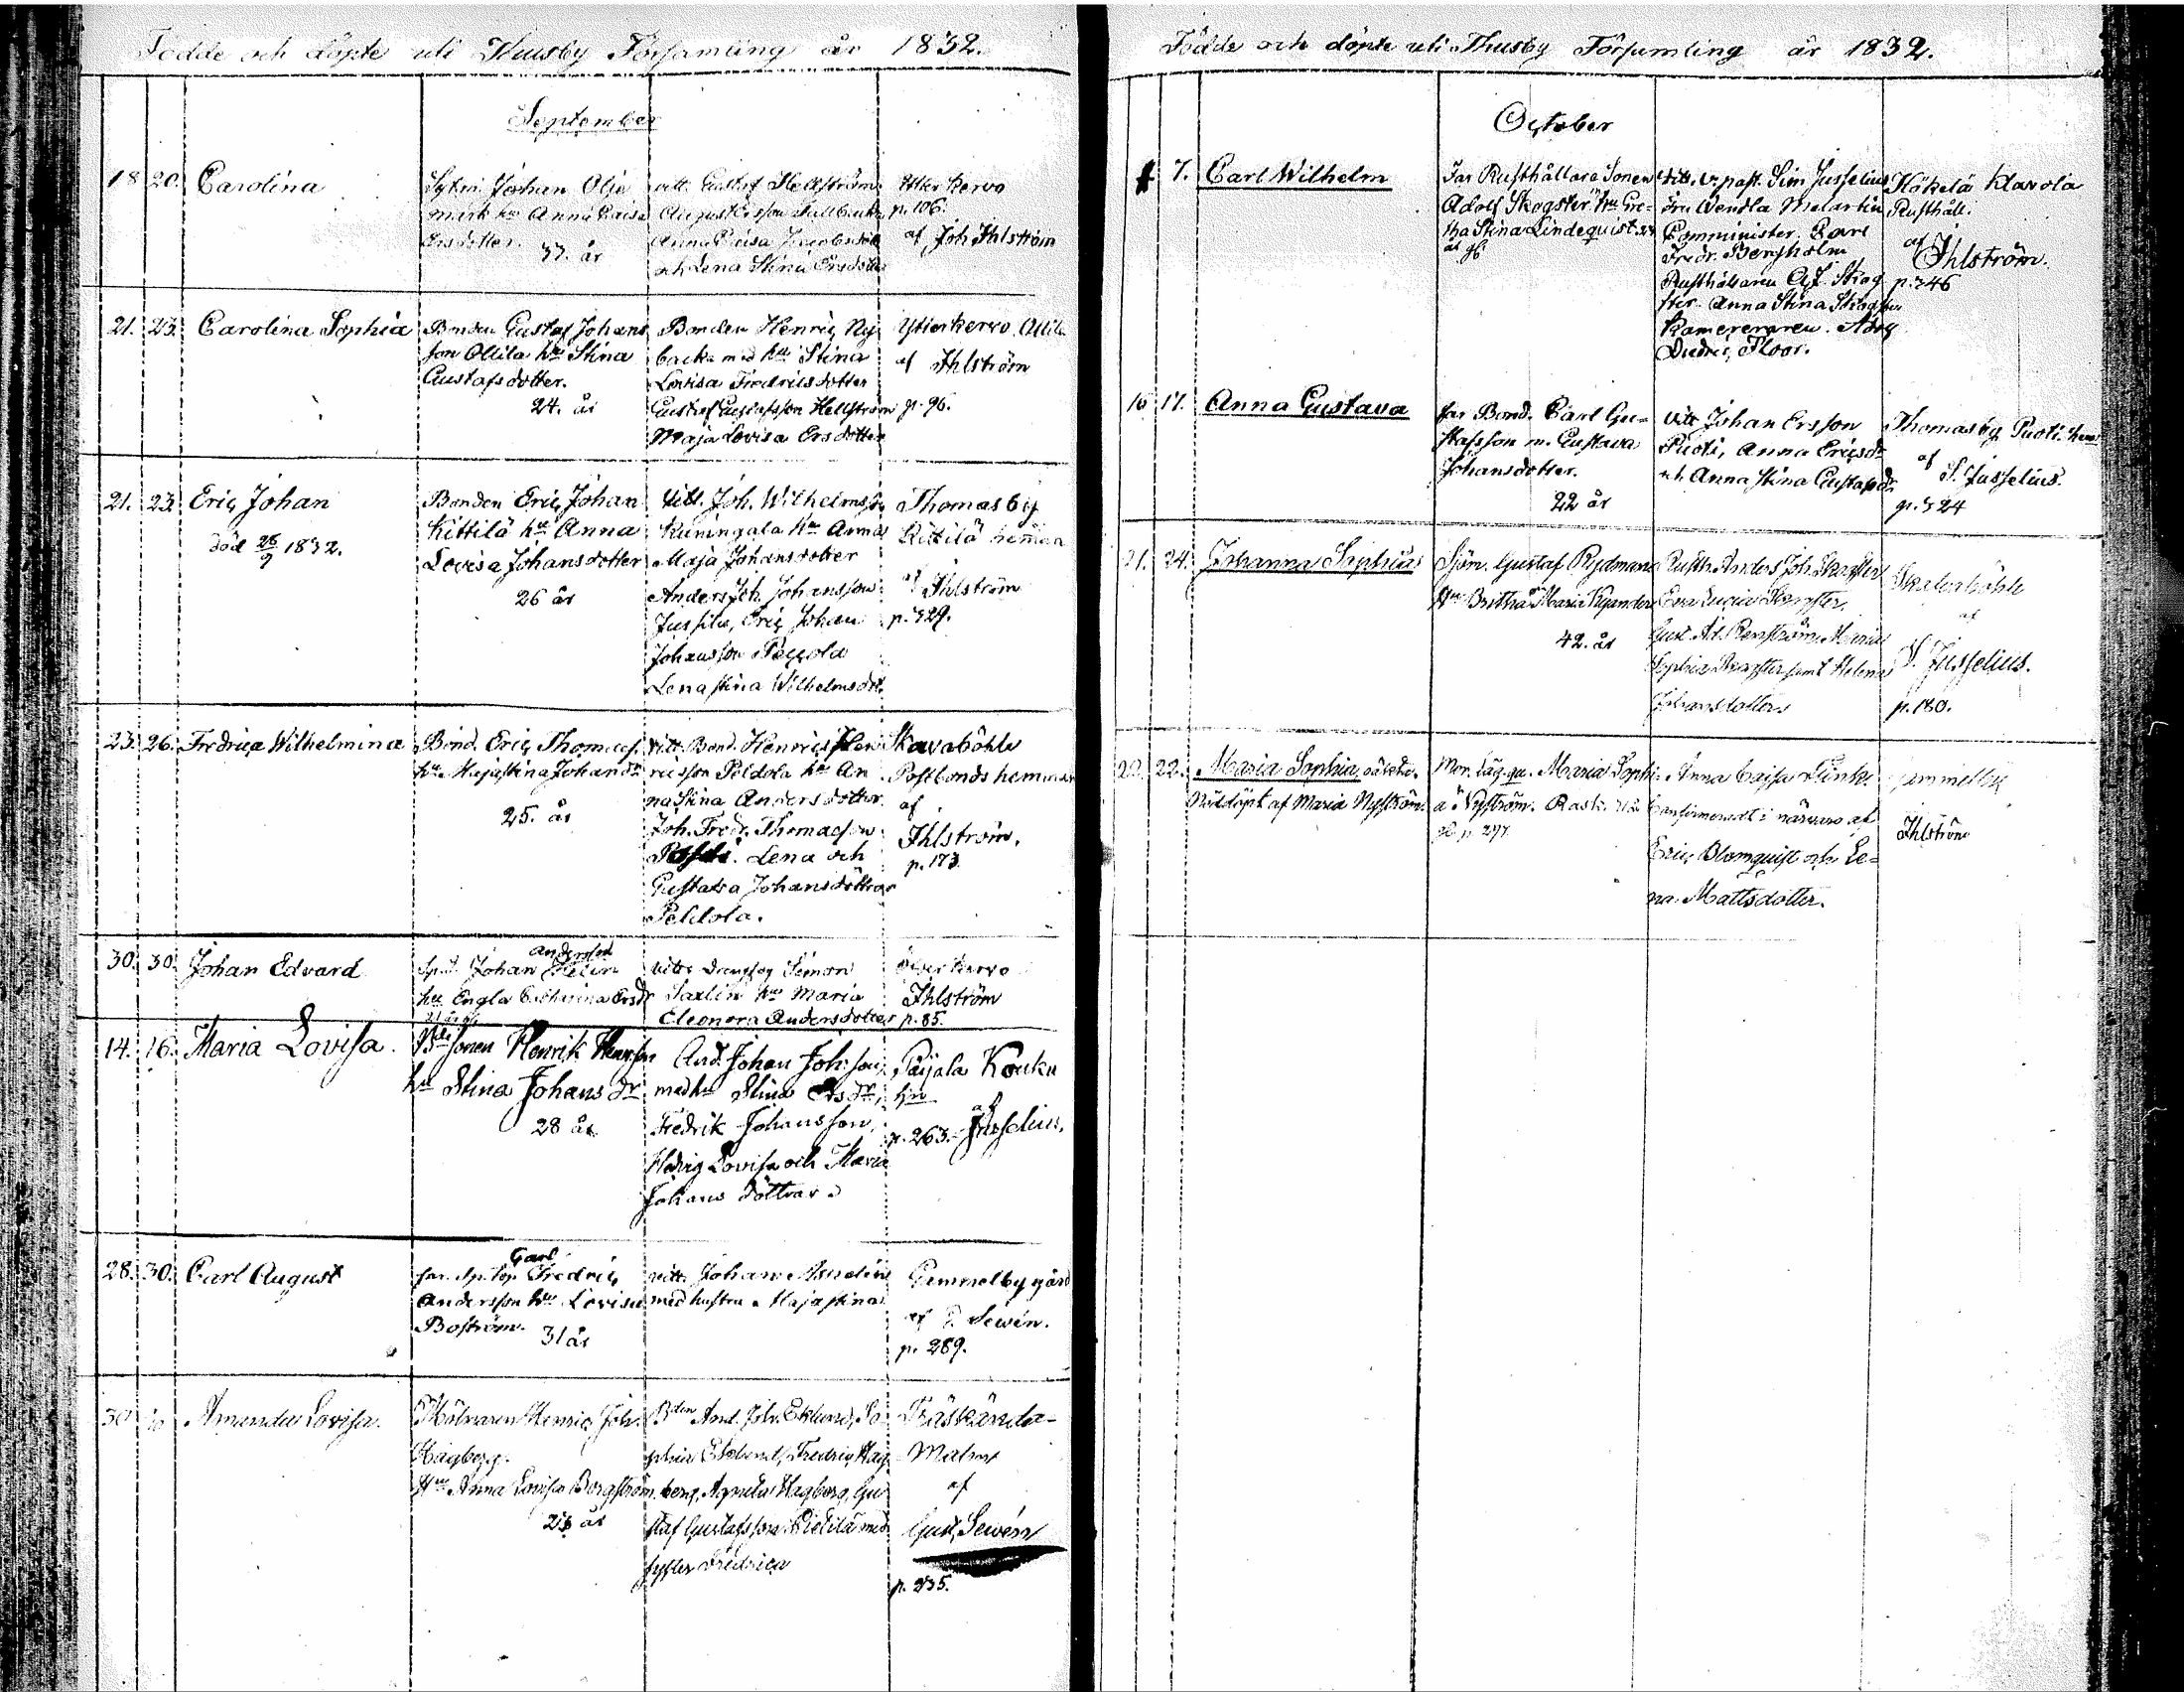 Födde och döpte uti Thusby Församling år 1832.
September
18 20. Carolina
Johan Olie
mark hu Anna Caisa
Ersdotter. 37. år
vitt. Gustaf Hellström
August Ersson
Anna Caisa Jacobsdot
och Lena Stina Ersdotter
Ytter Kervo
p. 106.
af Joh Ihlström
21. 23. Carolina Sophia
Bonden Gustaf Johans
son Ollila hu Stina
Gustafsdotter.
24. år
Bonden Henric Ny
backa med hu Stina
Lovisa Fredricsdotter
Gustaf Gustafsson Hellström
Maja Lovisa Ersdotter
Ytterkervo Ollila
af Ihlström
p. 96.
21. 23. Eric Johan
död 28/9 1832.
Bonden Eric Johan
Kittilä hu Anna
Lovisa Johansdotter
26 år
Vitt. Joh. Wilhelmsson
Kuningala hu Anna
Maja Johansdotter
Anders Joh. Johansson
Jussila, Eric Johan
Johansson
Lena Stina Wilhelmsdot.
Thomasby
Kittilä hemman
af Ihlström
p. 329.
23. 26. Fredrica Wilhelmina
Bond. Eric Thomass.
hu Maja Stina Johansdr
25. år
Vitt. Bond. Henric Hen
ricsson Peldola hu An
na Stina Andersdotter.
Joh. Fredr. Thomasson
Lena och
Gustava Johansdöttrar
Peldola.
Skavaböhle
Postbonds hemman
af
Ihlström.
p. 173.
30. 30. Johan Edvard
Andersson
Johan Helin
hu Engla Catharina Ersdr
vitt. Simon
Saxlin hu Maria
Eleonora Andersdotter
Öfver Kervo
Ihlström
p. 85.
14. 16. Maria Lovisa.
Bdesonen Henrik Henrson
hu Stina Johans dr
28 år
And. Johan Joh:sson,
med hu Stina Ersdr,
Fredrik Johansson,
Hedvig Lovisa och Maria
Johans döttrar.
Päijala Kouku
hn
af
p. 263. Jusselius.
28. 30. Carl August
Carl
far. Sp. Fredric
Andersson hu Lovisa
Boström. 31 år
vitt. Johan Asmelin
med hustru Maja Stina
Gammelby gård
af G. Sewén.
p. 289.
30 30 Amanda Lovisa.
Mölnaren Henric Joh.
Hagberg.
Hu Anna Lovisa Borgström
år
Bden And. Joh. Eklund, So
phia Eklund, Fredric Hag
berg, Agneta Hagberg, Gu
staf Gustafsson Pietilä med
syster Fredrica
Träskända-
Malm
af
Gust. Sewén
p. 235.
Födde och döpte uti Thusby Församling år 1832.
October
7. Carl Wilhelm
Far Rusthållare Sonen
Adolf Skogster hu Gre-
tha Stina Lindequist 23
år gl.
Vitt. v. past. Sim Jusselius
fru Wendla Malartin
Comminister Carl
Fredr. Bergholm
Rusthållaren A. J. Skog
ster. Anna Stina Skogster
Kamereraren Adolf
Diedric Floor.
Hökelä Klavola
Rusthåll.
af
Ihlström.
p. 346
16 17. Anna Gustava
far Bond. Carl Gu-
stafsson m. Gustava
Johansdotter.
22 år
Vitt Johan Ersson
Puoti, Anna Ericsdr
och Anna Stina Gustafsdr.
Thomasby Puoti hem
af
S. Jusselius.
p. 324
21. 24. Johanna Sophia
Sjöm. Gustaf Rydman
Hu Britha Maria Kyander
42. år
Rusth. Anders Joh. Skogster
Eva Lucia Skogster,
Gust. Ad. Renström, Maria
Sophia Skogster samt Helena
Johansdotter
Skavaböhle
af
S. Jusselius.
p. 180.
22. 22. Maria Sophia, oäkta.
Nöddöpt af Maria Nyström
Mor. lög. qv. Maria Sophi-
a Nyström. Rask. 31 år
p. 297.
Anna Caisa Funk
Confirmeradt i närvaro af
Eric Blomquist och Le-
na Mattsdotter.
Gammelby
Ihlström